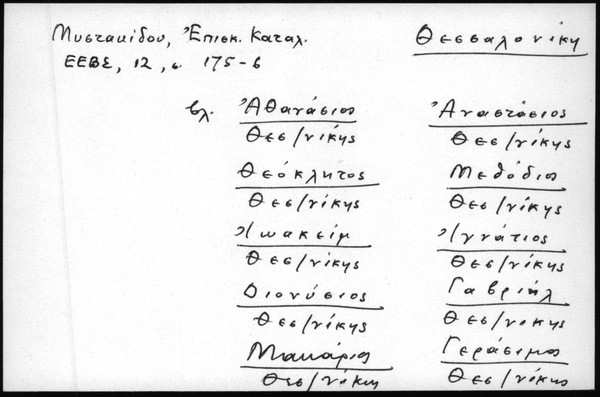 Μυστακίδου, Ἐπισκ. Καταλ. Θεσσαλονίκη
ΕΕΒΣ, 12, σ. 175-6
βλ. Ἀθανάσιος Ἀναστάσιος
Θεσ/νίκης Θεσ/νίκης
Θεόκλητος Μεθόδιος
Θεσ/νίκης Θεσ/νίκης
Ἰωακείμ Ἰγνάτιος
Θεσ/νίκης Θεσ/νίκης
Διονύσιος Γαβριήλ
Θεσ/νίκης Θεσ/νίκης
Μακάριος Γεράσιμος
Θεσ/νίκης Θεσ/νίκης